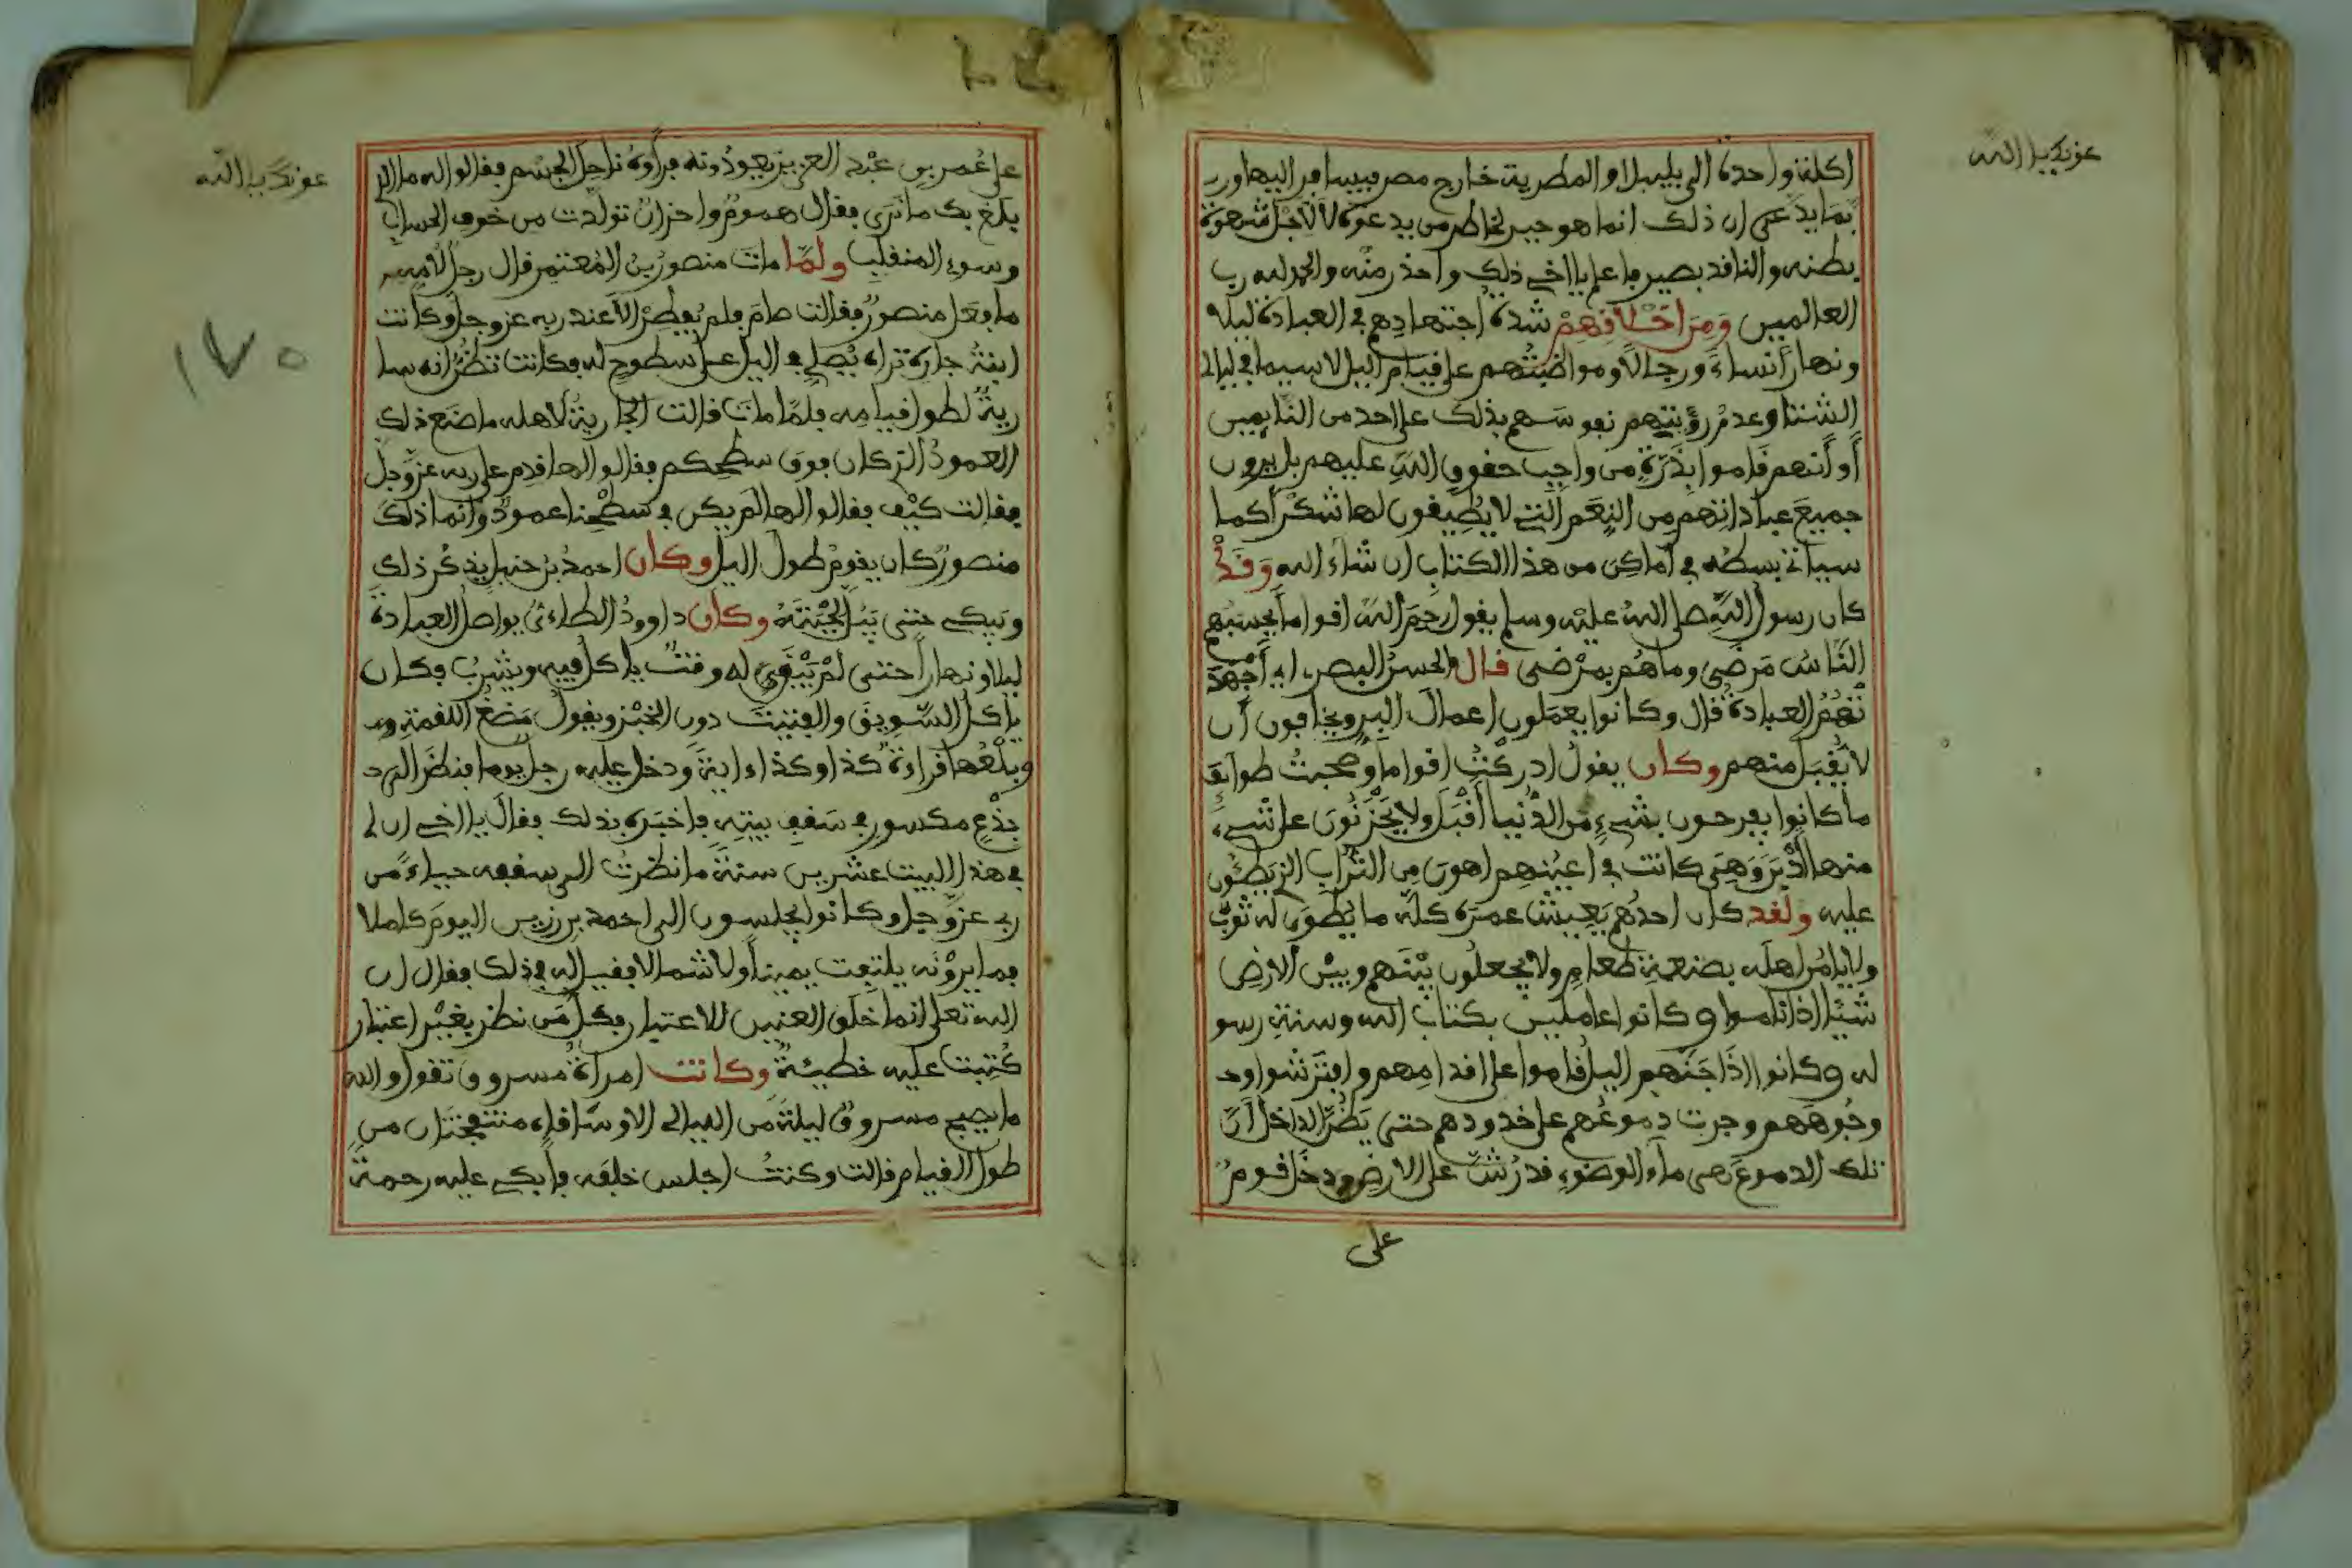 عونك يا الله
اكلة واحدة الى بلبيس او المطرية خارج مصر فيسافر اليها ور
بما يدعى ان ذلك انما هو جبر لخاطر من يدعوه لا لاجل شهوة
بطنه والناقد بصير فاعلم يا اخي ذلك واحذر منه والحمد لله رب
العالمين وَمِنَ اَخْلاَفِهِمْ شدة اجتهادهم في العبادة ليلا
ونهاراً نساءً ورجالا ومواظبتهم على قيام اليل لاسيما في ليالى
الشتا وعدم رؤيتهم نفوسهم بذلك على احد من النايمين
أو أنهم قاموا بِذَرَّةٍ من واجب حقوق الله عليهم بل يرون
جميعَ عباداتهم من النِعَم التي لا يُطِيقون لها شكرًا كما
سياتي بسطه في أماكِن من هذا الكتاب ان شاء الله وَقَدْ
كان رسول الله صلى الله عليه وسلم يقول رحِمَ الله اقواما يحسبهم
الناس مَرضَى وما هُم بمرْضى قال والحسن البصرى اى أجهد
تْهُمُ العبادة قال وكانوا يعملون اعمال البر ويخافون أن
لا يُقبل منهم وكان يقول ادركتُ اقواما وصحبتُ طوائف
ما كانوا يفرحون بشيءٍ من الدُّنيا أقْبَلَ ولا يَحْزَنُونَ على شيء
منها أدْبَرَ وَهِىَ كانت في اعينهم اهون من التراب الذى يَطَئُون
عليه ولقد كان احدُهم يَعِيشُ عمره كله ما يُطوَى له ثوبٌ
ولا يامُر اهله بصنعة طعامٍ ولا يجعلون بيْنهم وبيْن الارض
شيئا اذا ناموا وكانوا عاملين بكتاب الله وسنة رسو
له وكانوا اذَا جَنَّهم اليل قاموا على اقدامهم وافترشوا
وجُوههم وجرت دموعُهم على خدودهم حتى يَظُنَّ الداخل أنَّ
تلك الدموعَ هى ماء الوضوء قد رُشَّ على الارض ودخل قومٌ
على
عونك يا الله
على عُمر بن عبْد العزيز يعودونه فرأوهُ ناحِلَ الجِسْم فقالوا له ما الذى
بلَغ بك ما نَرَى فقال همومٌ واحزانٌ تولّدت من خوف الحساب
وسوء المنقلب ولمّا مات منصورُ بن المُعْتمر قال رجل لامه
ما فعَل منصورٌ فقالت صامَ فلم يُفطِرْ الاّ عند ربه عز وجل وكانت
ابنةُ جارِه تراه يُصلى في اليل على سطوح له فكانت تظُنُّ انه سا
ريةٌ لطول قيامه فلمّا مات قالت الجاريةُ لاهله ما صَنع ذلك
العمودُ الذى كان فوق سطحكم فقالوا لها قدم على ربه عزّوجل
فقالت كيْف فقالوا لها لم يكن في سطْحنا عمودٌ وانما ذلك
منصورٌ كان يقوم طول اليل وكان احمدُ بْن حنبل يذكُر ذلك
ويبكى حتى يَبُلَّ لِحْيَتَهُ وكان داوودُ الطاءى يواصل العبادة
ليلا ونهاراً حتى لمْ يَبْقَ له وقتٌ ياكل فيه ويشربُ فكان
ياكل السَّوِيقَ والفتيتَ دون الخبْز ويقول مَضْغُ اللقمةِ
وبلْعُها قراءةُ كذا وكذا ءايةً ودخل عليه رجل يوما فنظر الى
جِذْعٍ مكسورٍ في سَقفِ بيتِه فاخبَره بذلك فقال يا اخى ان لى
في هذا البيت عشرين سنةً ما نظرتُ الى سقفه حياءً من
ربى عزّ وجل وكانوا يجلسون الى احمد بن رزين اليومَ كاملا
فما يروْنه يلتفت يميناً ولا شمالا فقيل له في ذلك فقال ان
الله تعلى انما خلَق العينين للاعتبار فكل مَن نظر بغيْر اعتبار
كُتِبتْ عليه خطيئةٌ وكانت امرأةُ مسروق تقول والله
ما يصبح مسروقٌ ليلةً من الليالى الا وسَاقاه منتفختان من
طول القيام قالت وكنتُ اجلس خلفَه فأبكى عليه رحمةً
١٧٥